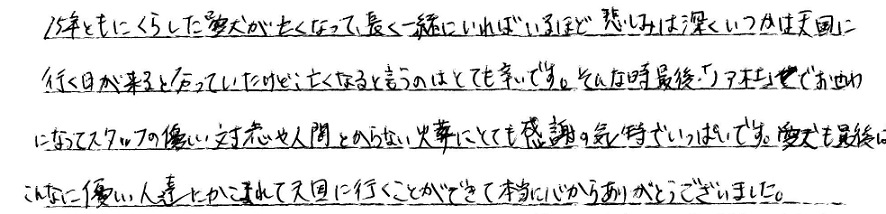 15年ともにくらした愛犬が亡くなって、長く一緒にいればいるほど 悲しみは深くいつかは天国に
行く日が来ると分っていたけど、亡くなると言うのはとても辛いです。そんな時最後に でお世わ
になってスタッフの優しい対応や人間とかわらない火葬にとても感謝の気持でいっぱいです。愛犬も最後は
こんなに優しい人達にかこまれて天国に行くことができて本当に心からありがとうございました。